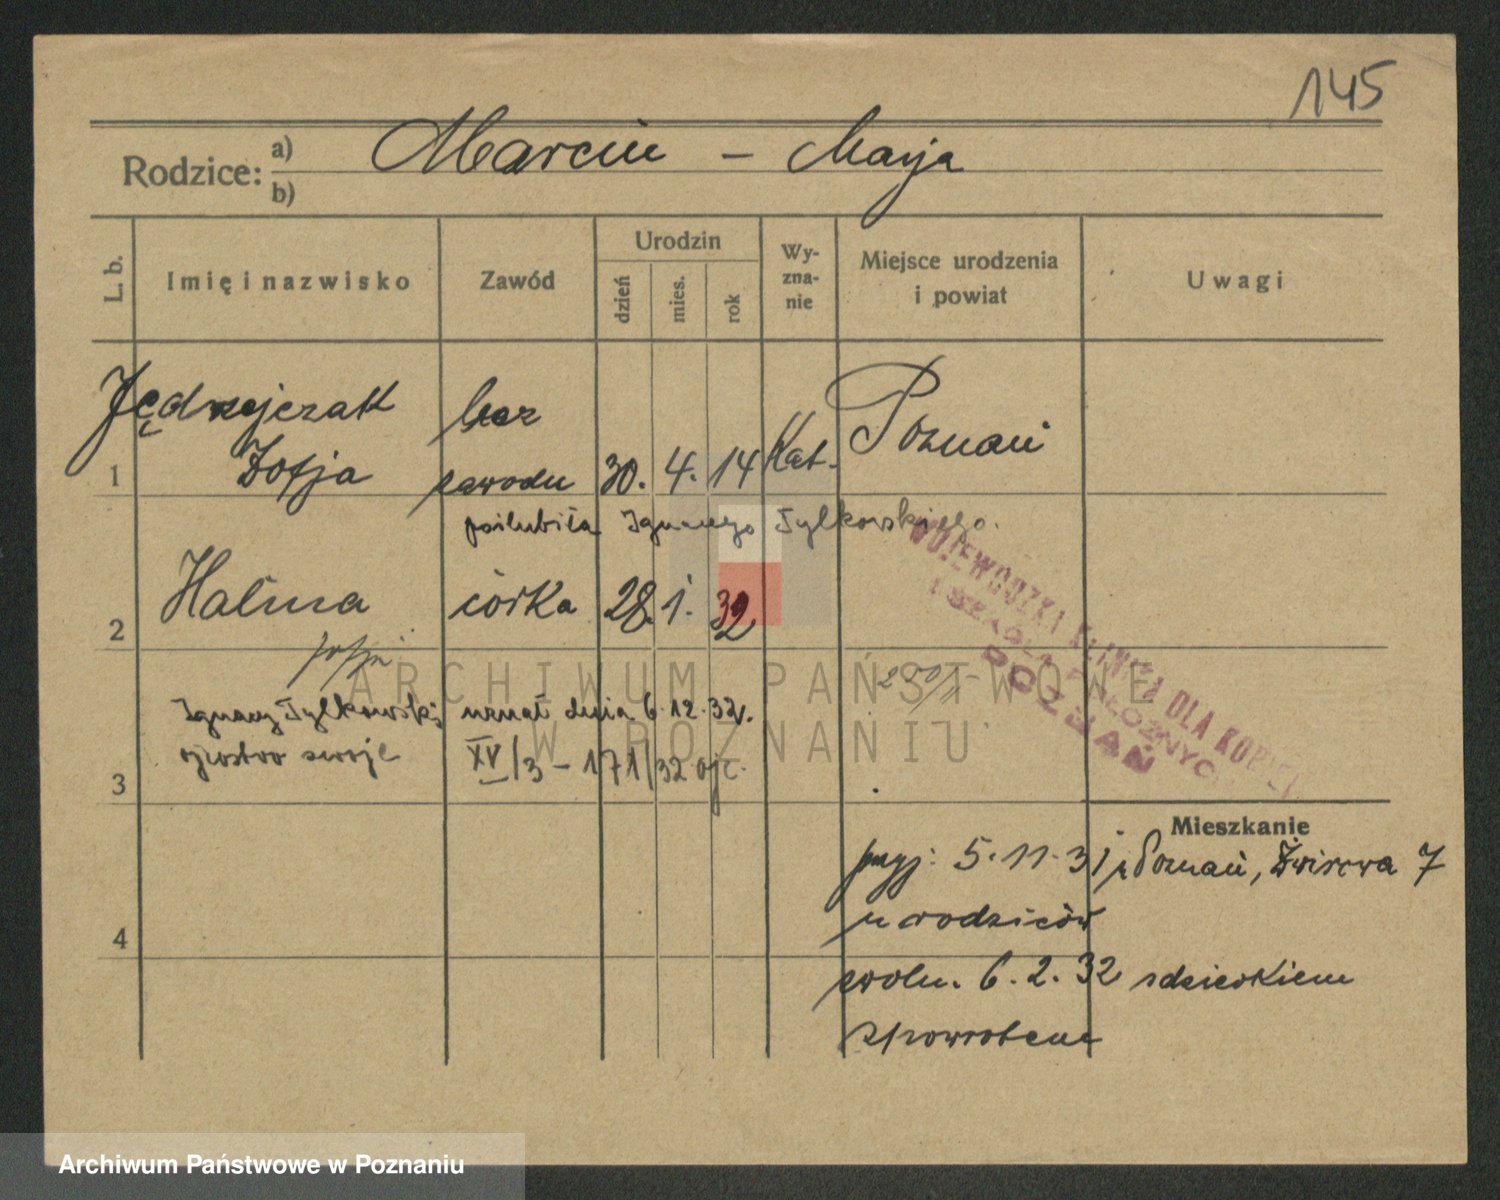 145
Rodzice: a) b) Marcin – Marja
L. b.
Imię i nazwisko
Zawód
Urodzin
dzień
mies.
rok
Wy-
zna-
nie
Miejsce urodzenia
i powiat
Uwagi
Jędrzejczak bez
1 Zofja zawodu 30. 4. 14 Kat. Poznań
poślubiła Ignacego Tylkowskiego.
2 Halina córka 28. 1. 32
Zofja
WOJEWÓDZKA KLINIKA DLA KOBIET
I SZKOŁA POŁOŻNYCH
POZNAŃ
Ignacy Tylkowski uznał dnia 6.12.32r.
ojcostwo swoje XV/3 – 171/32 ojc.
3
Mieszkanie
przyj: 5.11.31 z Poznań, Żwirowa 7
u rodziców
4
zwoln. 6.2.32 z dzieckiem
z powrotem
ARCHIWUM PAŃSTWOWE
W POZNANIU
Archiwum Państwowe w Poznaniu